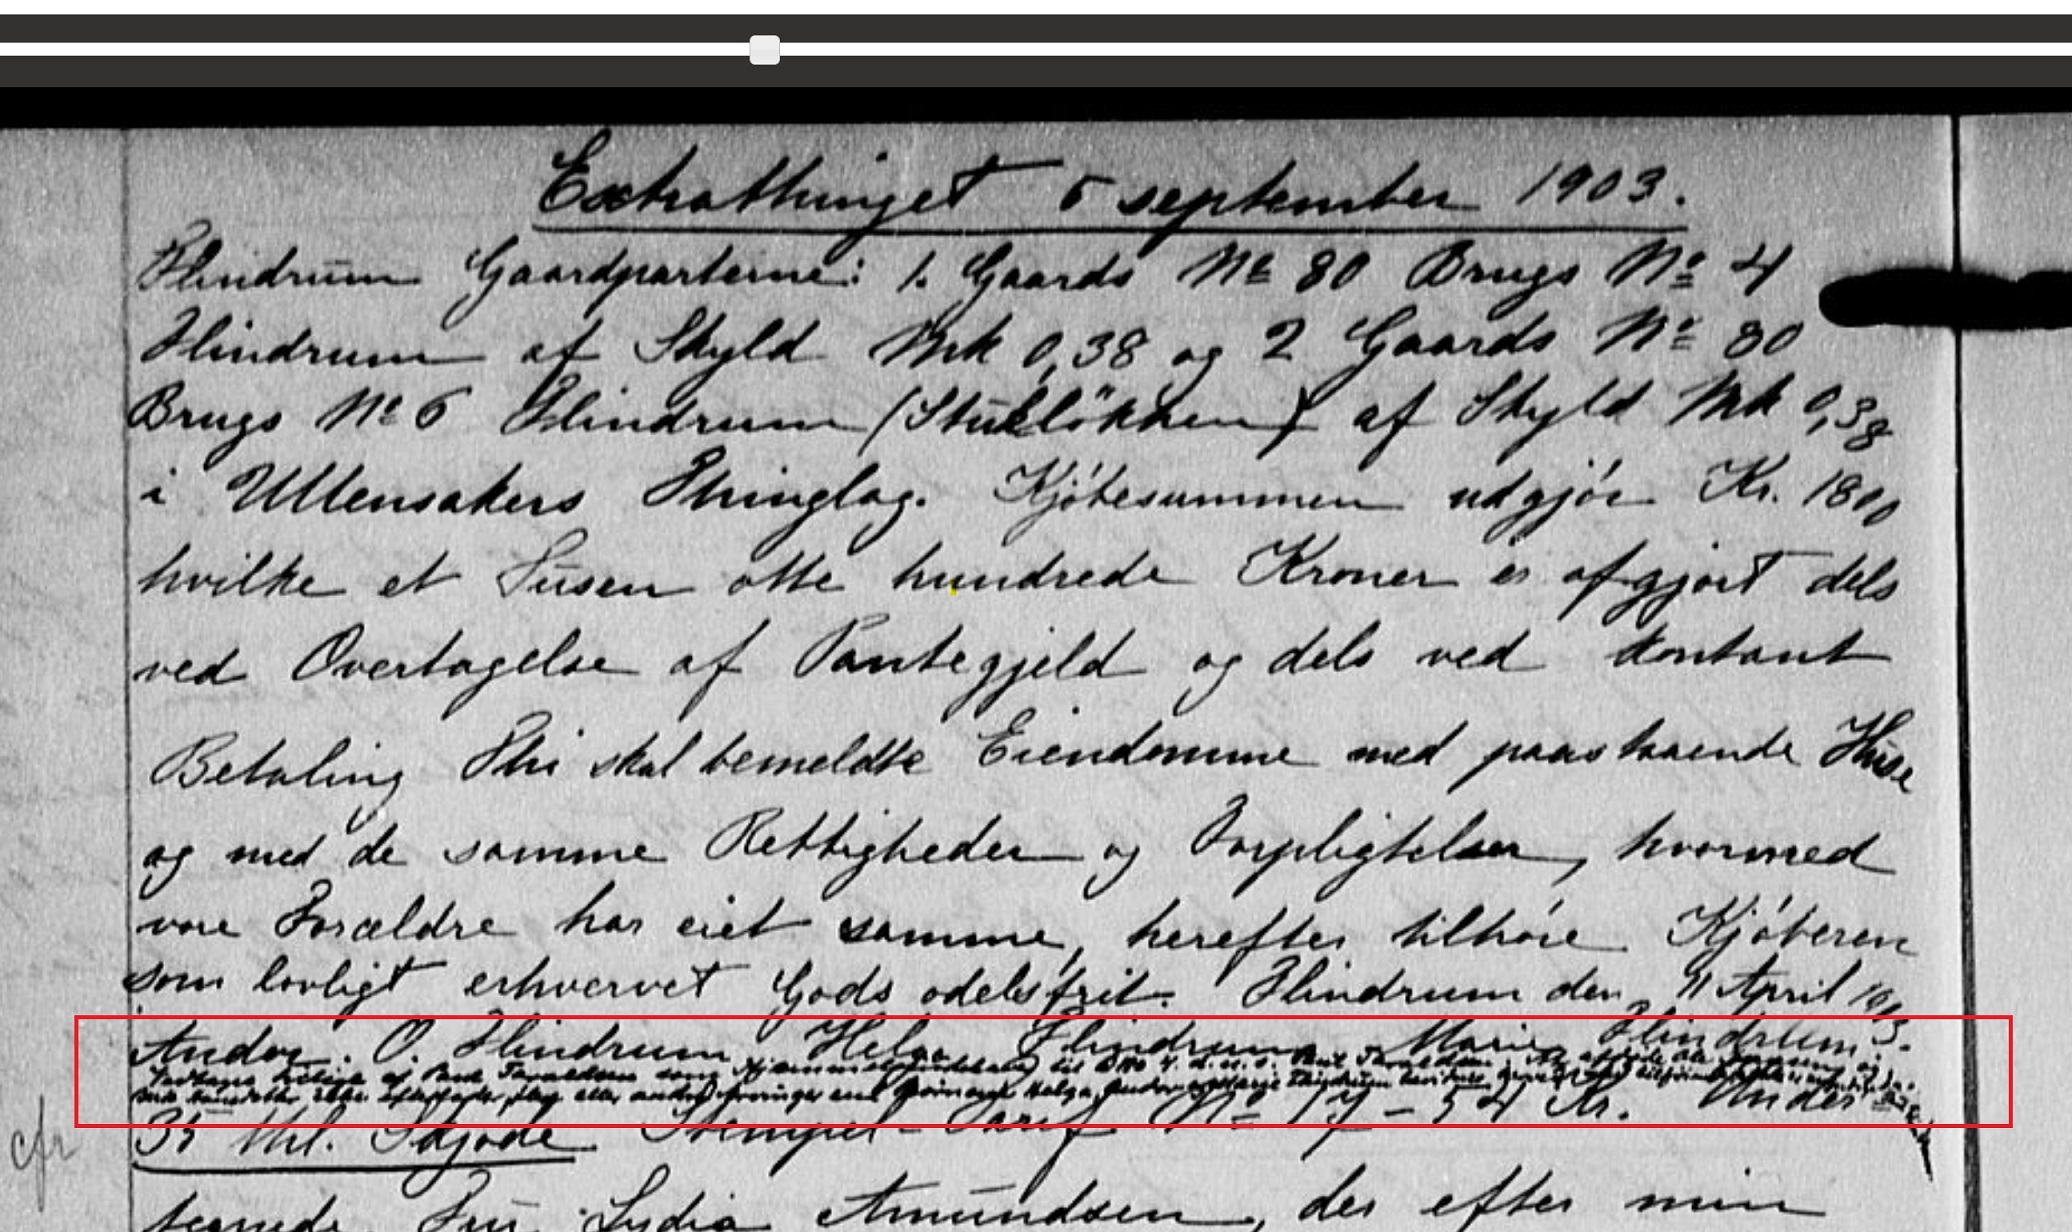 Extrathinget 5 september 1903.
Hindrum Gaardparterne: 1. Gaards No 80 Brugs No 4
Hindrum af Skyld Mrk 0,38 og 2 Gaards No 80
Brugs No 6 Hindrum (Stubløkken) af Skyld Mrk 0,38
i Ullensakers Thinglag. Kjøbesummen udgjør Kr. 1800
hvilke et Tusen otte hundrede Kroner er afgjort dels
ved Overtagelse af Pantegjeld og dels ved kontant
Betaling Thi skal bemeldte Eiendomme med paastaaende Huse
og med de samme Rettigheder og Forpligtelser, hvormed
vore Forældre har eiet samme, herefter tilhøre Kjøberen
som lovligt erhvervet Gods odelsfrit. Hindrum den 11 April 1903.
Andor. O. Hindrum Helga Hindrum Marie Hindrum
af Paul som Hjemmels til B No 4.
ikke eller andre end Helga, Andor Marie Hindrum
35 Skjøde Stempel-Tarif No 17 - 54 Kr. Under
tegnede Fru Lydia Amundsen, der efter min
cfr